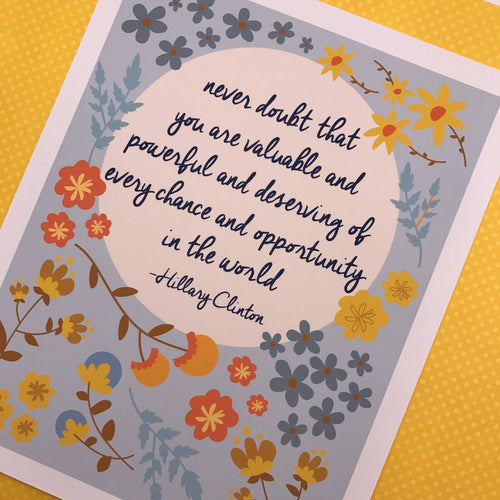 never doubt that
you are valuable and
powerful and deserving of
every chance and opportunity
in the world
-Hillary Clinton